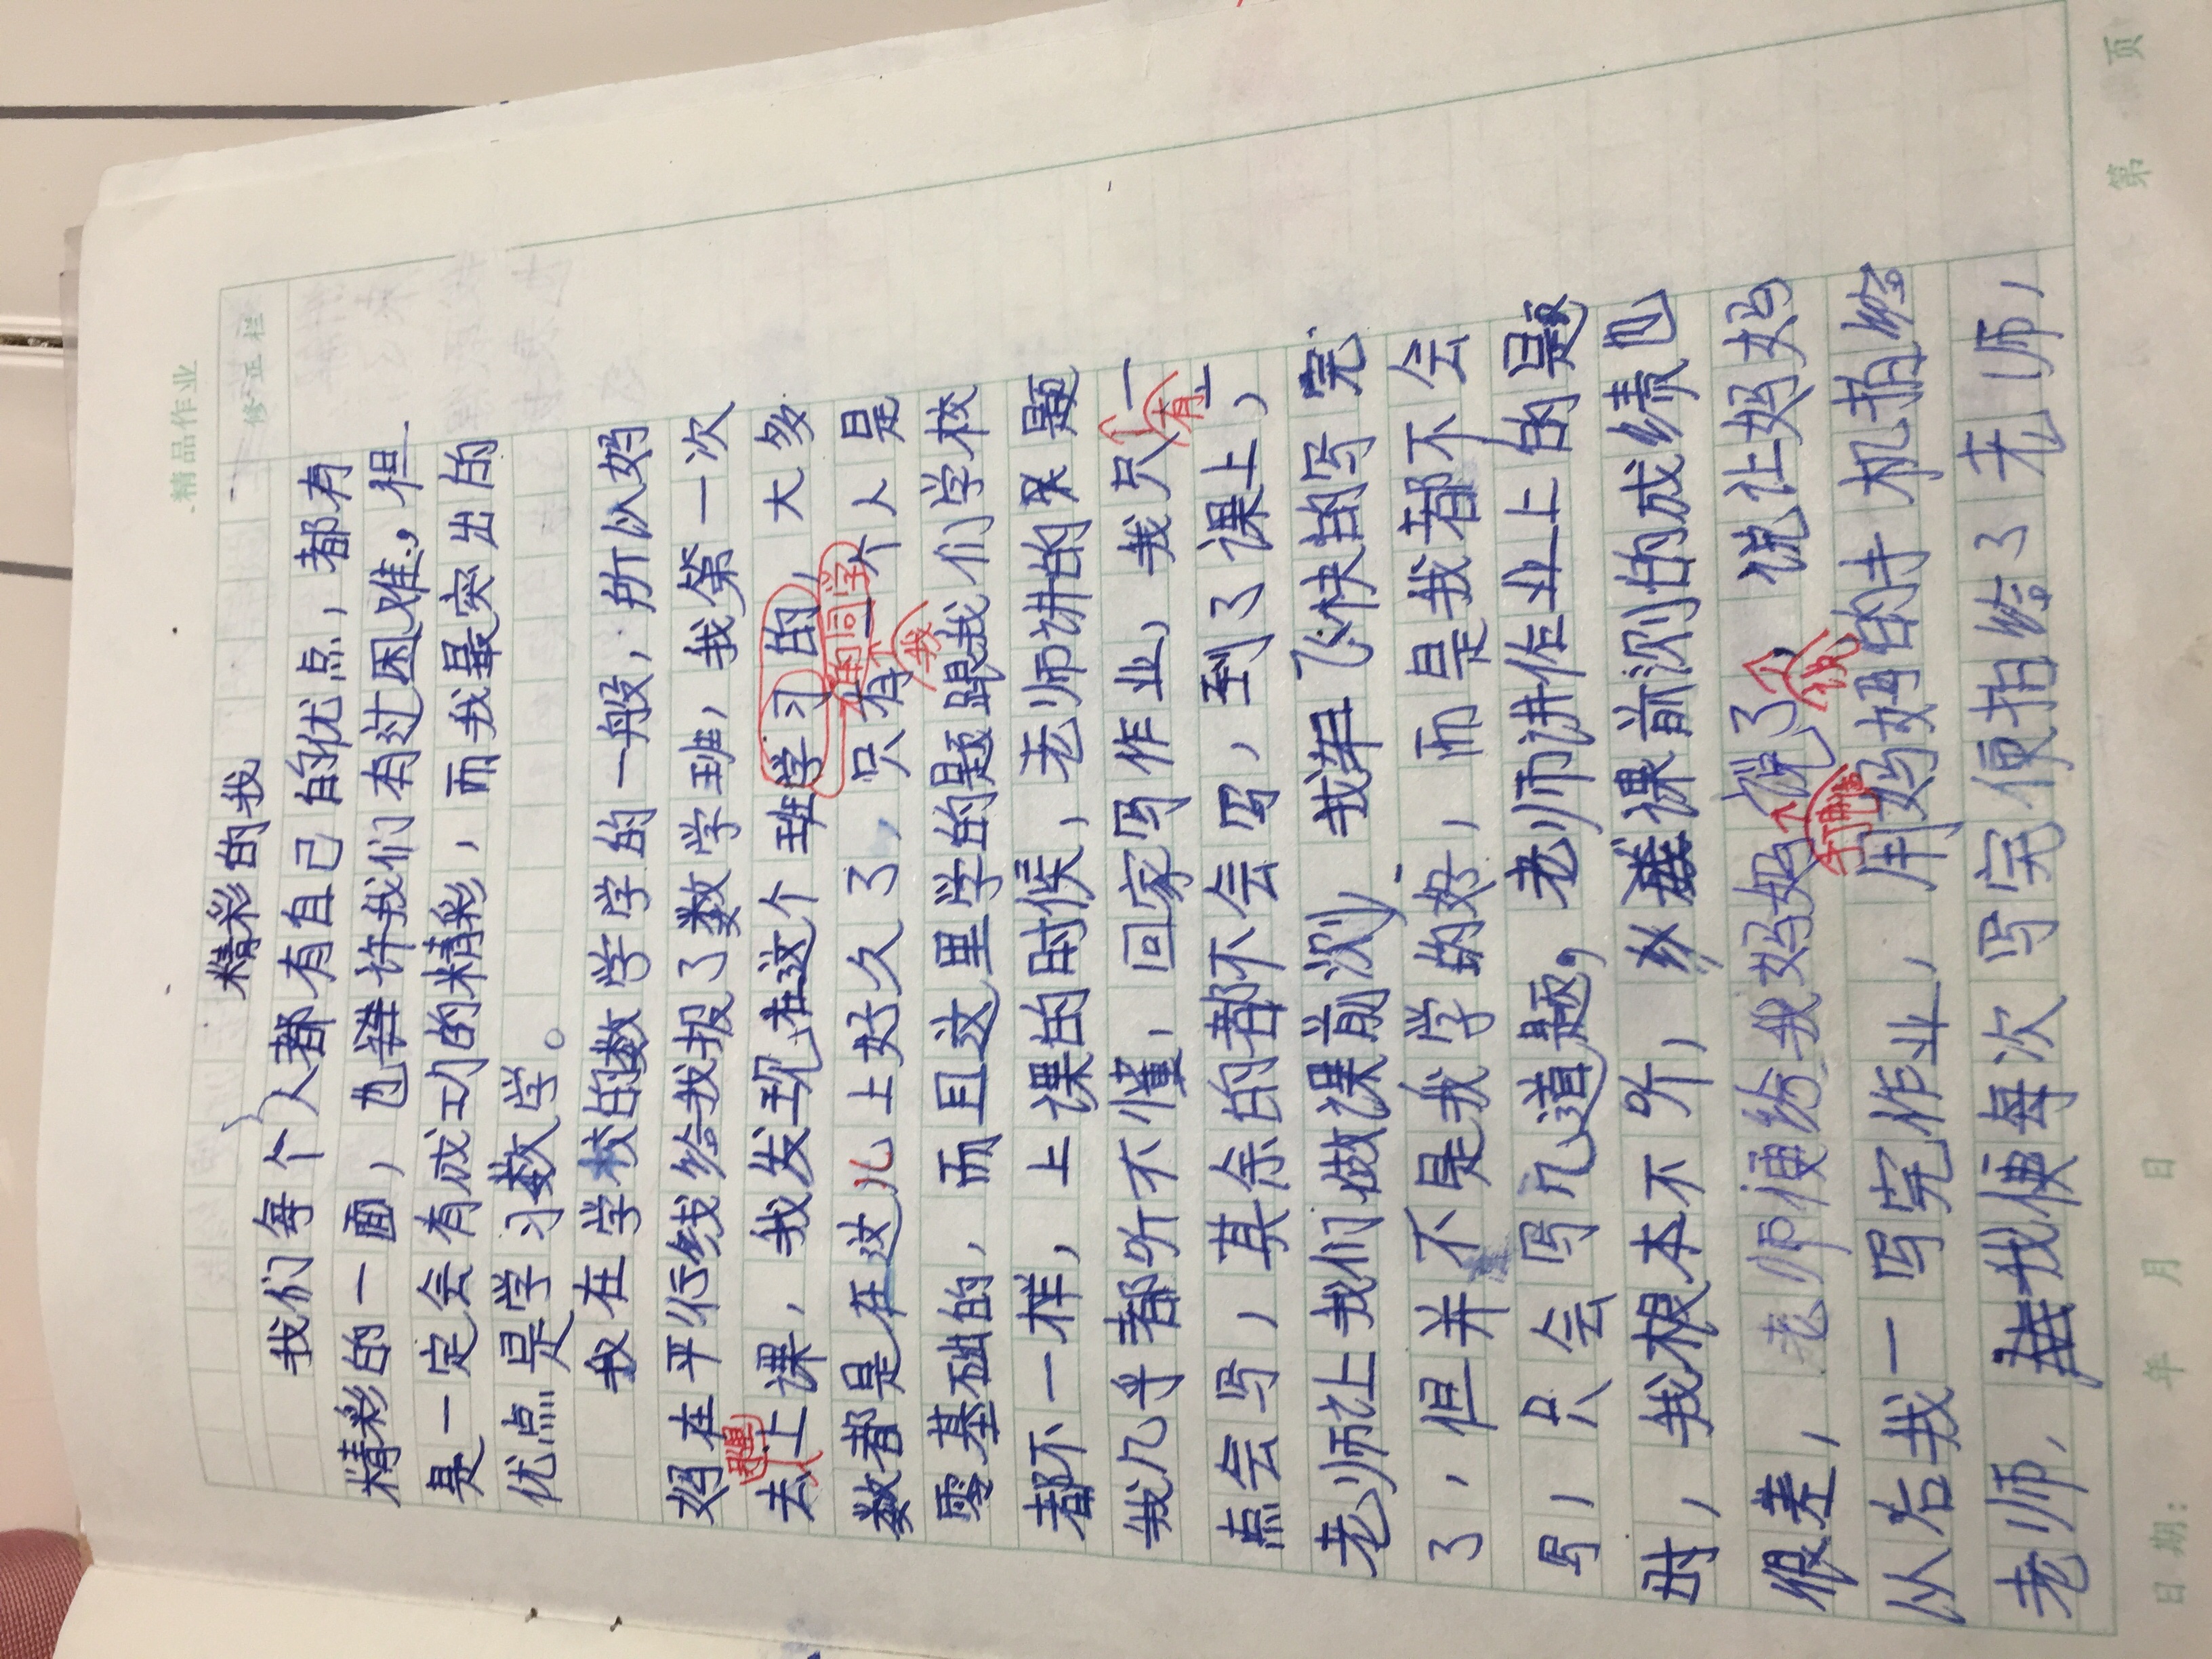 精品作业
修正栏
精彩的我
我们每个人都有自己的优点，都有
精彩的一面，也许我们有过困难，但
是一定会有成功的精彩，而我最突出的
优点是学习数学。
我在学校的数学学的一般，所以妈
妈在平行线给我报了数学班，我第一次
那里
去上课，我发现在这个班学习的，大多
的同学
数都是在这儿上好久了，只有个人是
我
零基础的，而且这里学的题跟我们学校
都不一样，上课的时候，老师讲的题
我几乎都听不懂，回家写作业，我只一
有
点会写，其余的都不会写，到了课上，
老师让我们做课前测，我飞快的写完
了，但并不是我学的好，而是我都不会
写，只会写几道题，老师讲作业上的题
时，我根本不听，课前测的成绩也
很差，老师便给我妈妈说了，说让妈妈
打电话
从右我一写完作业，用妈妈的手机拍给
老师，我便每次写完便拍给了老师，
日期： 年 月 日
第 页